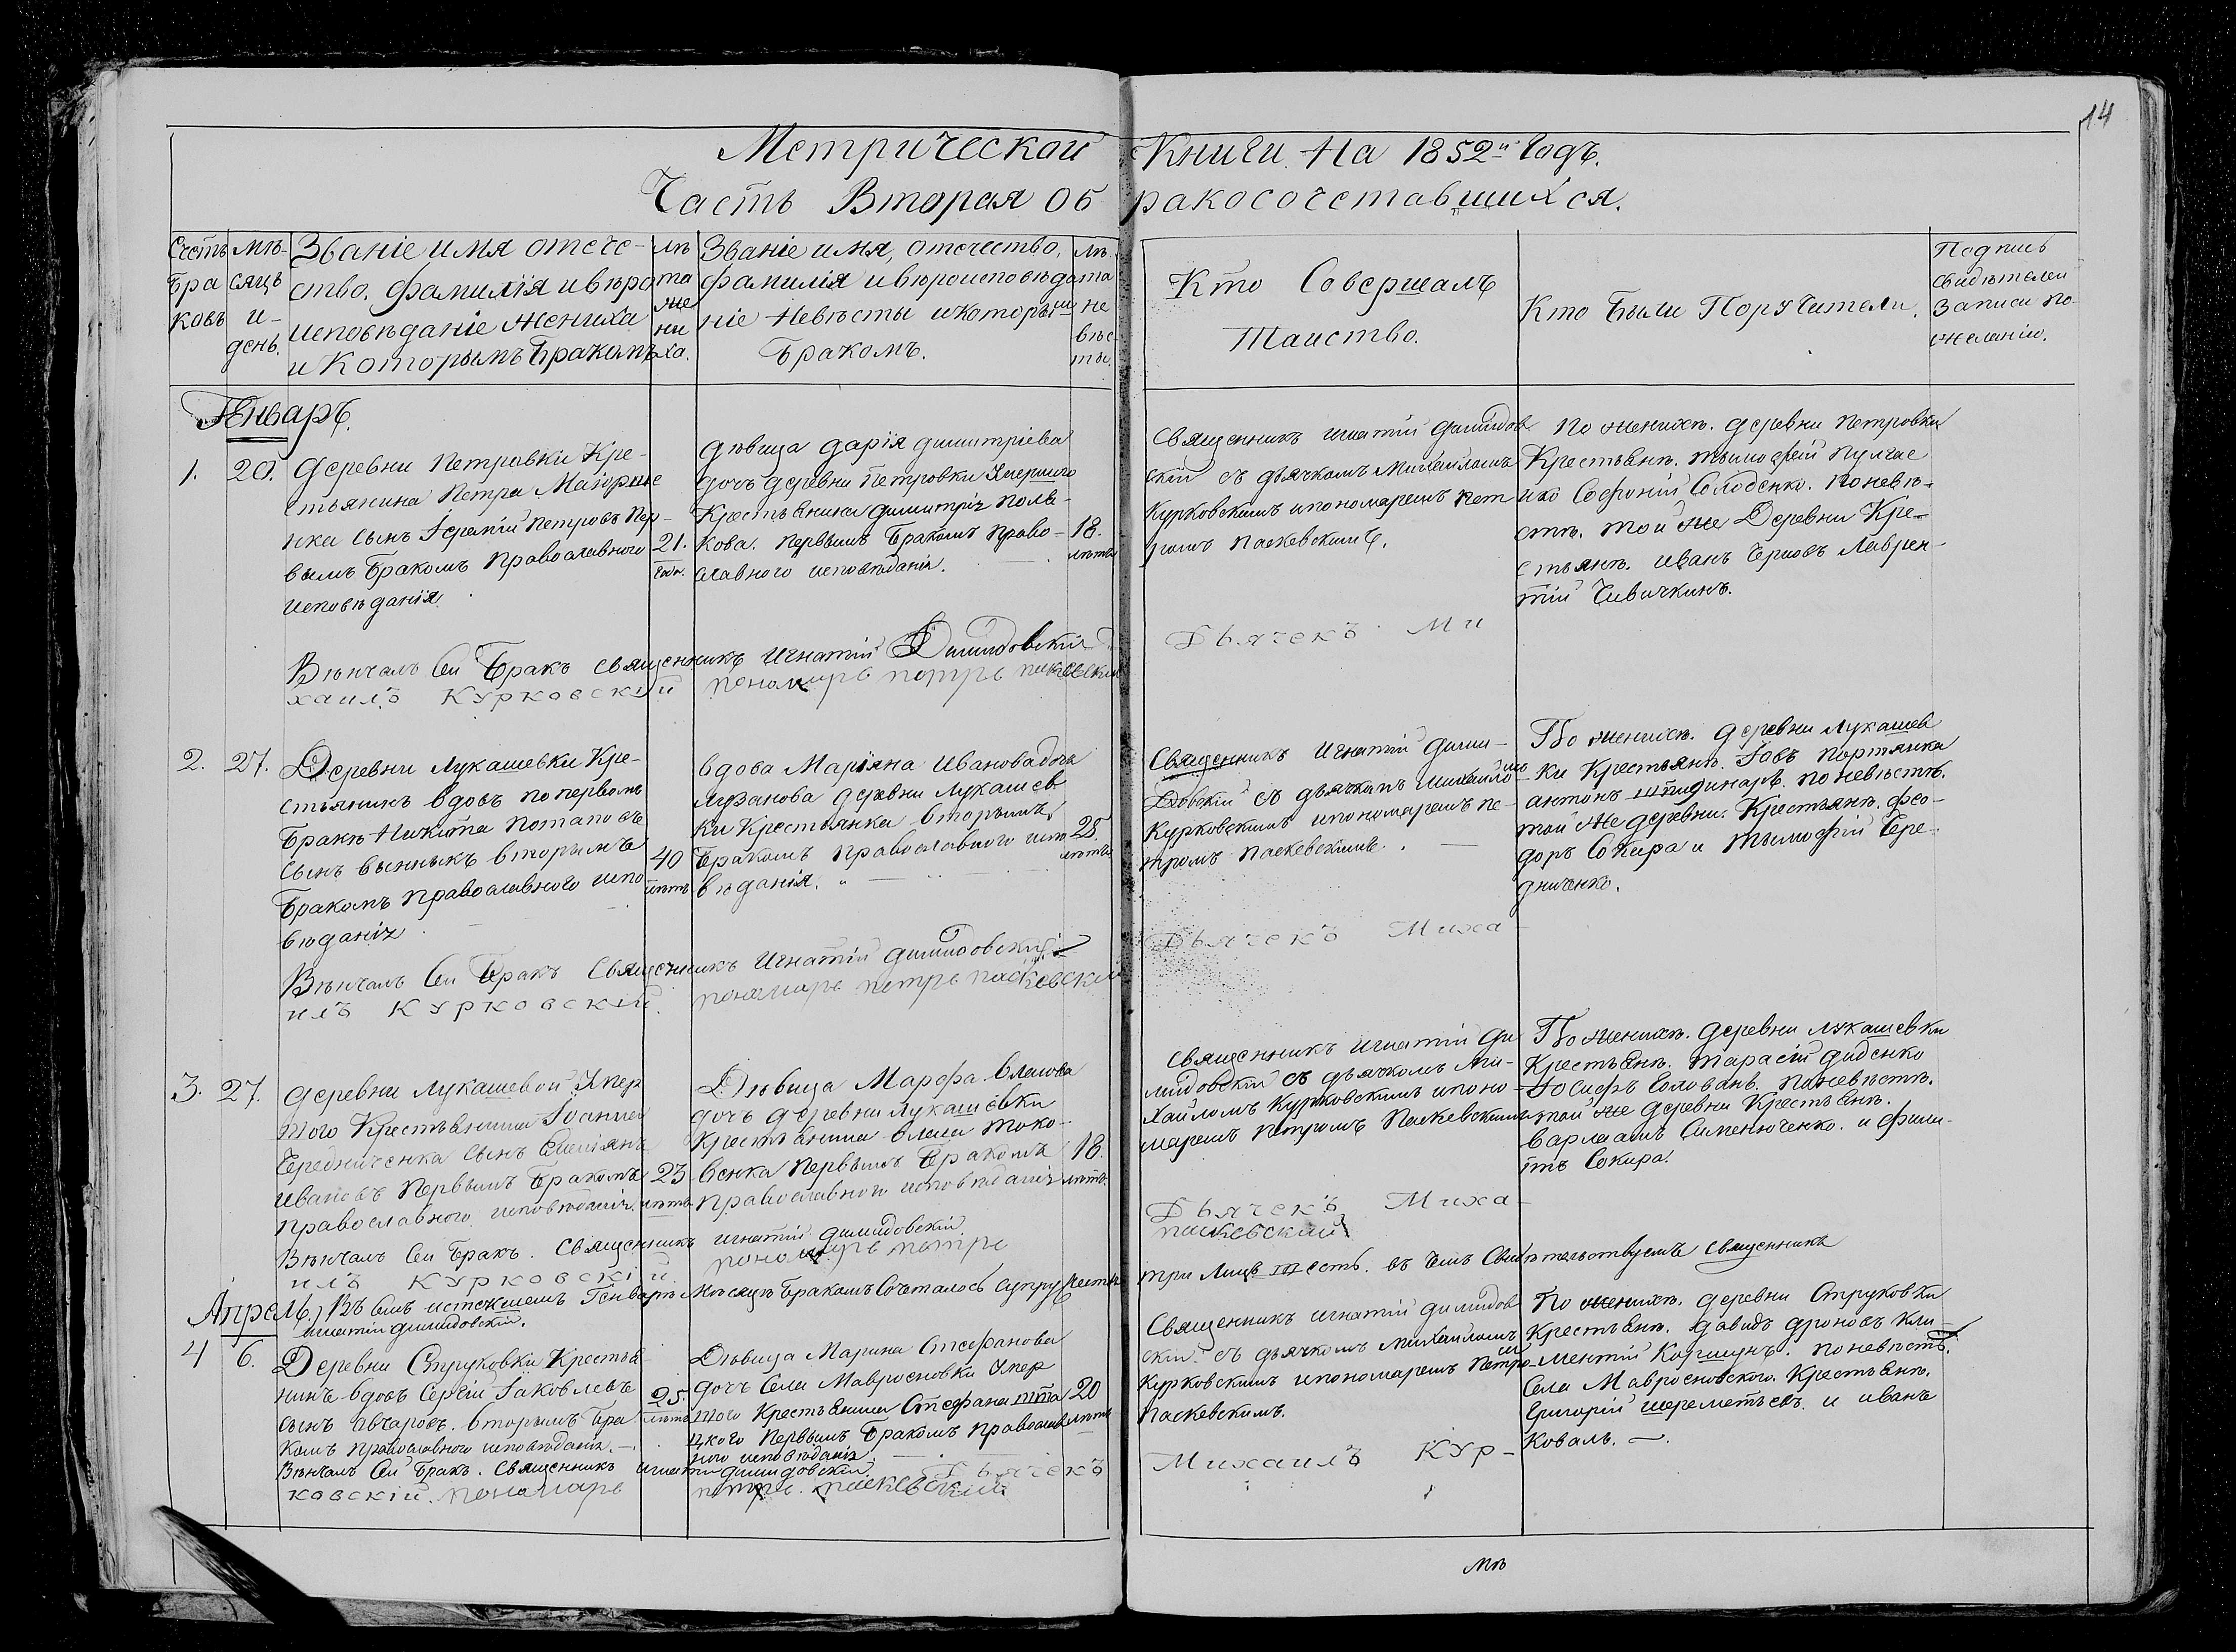 14
Метрической Книги на 1852й Годъ.
Часть Вторая о бракосочетавшихся.
Счетъ браковъ
Мѣсяцъ и день.
Званіе имя отечество, фамилія и вѣроисповѣданіе жениха и Которымъ Бракомъ
лѣта жениха.
Званіе имя, отечество, фамилія и вѣроисповѣданіе Невѣсты и которымъ Бракомъ.
лѣта невѣсты.
Кто Совершалъ Таинство.
Кто Были Поручители.
Подпись свидѣтелей Записи по желанію.
Генварь.
1. 20.
Деревни Петровки Кре-
стьянина Петра
сынъ Петровъ Пер-
вымъ Бракомъ Православного
исповѣданія
21.
года.
Дѣвица Дарія Димитріева
дочь деревни Петровки Умершого
Крестьянина Димитрія Поля-
кова. Первымъ Бракомъ Право-
славного исповѣданія.
18.
лѣтъ
Священникъ Игнатій Димидов
скій съ дьячкомъ Михаиломъ
Курковскимъ и пономаремъ Пет
ромъ Паскевскимъ.
По женихѣ. деревни Петровки
Крестьяне. Тымофей
Софроній Солоденко. По невѣ-
стѣ. той же Деревни Кре-
стьяне. Иванъ Лаврен-
тій Чивичкинъ.
Вѣнчалъ Сей Бракъ Священникъ Игнатій Димидовскій
Дьячекъ Ми
хаилъ Курковскій пономарь петръ паскевскій
2. 27.
Деревни Лукашевки Кре-
стьянинъ вдовъ по первомъ
Бракѣ Никита Потаповъ
Сынъ вторымъ
Бракомъ Православного испо
вѣданія
40
лѣтъ
Вдова Маріяна Иванова дочь
деревни Лукашев
ки Крестьянка вторымъ
Бракомъ православного испо
вѣданія.
28.
лѣтъ
Священникъ Игнатій Дими-
довскій съ дьячкомъ Михайломъ
Курковскимъ и пономаремъ Пе-
тромъ Паскевскимъ.
По женихѣ. деревни Лукашев
ки Крестьяне. Іовъ Портянка
Антонъ по невѣстѣ.
той же деревни. Крестьяне. Фео-
доръ Сокира и Тымофій Чере-
дниченко.
Вѣнчалъ Сей Бракъ Священникъ Игнатій Димидовскій
Дьячекъ Миха-
илъ Курковскій. пономарь петръ паскевскій
3. 27.
Деревни Лукашевой Умер
шого Крестьянина Іоанна
Чередниченка сынъ
Ивановъ Первымъ Бракомъ
православного исповѣданія.
23
лѣтъ
Дѣвица Марфа Власова
дочь деревни Лукашевки
Крестьянина Власа Токо-
венка Первымъ Бракомъ
православного исповѣданія
18.
лѣтъ.
Священникъ Игнатій Ди
мидовскій съ дьячкомъ Ми-
хаиломъ Курковскимъ и поно-
маремъ Петромъ Паскевскимъ
По женихѣ. деревни Лукашевки
Крестьяне. Тарасій Диденко
Іосифъ по невѣстѣ.
той же деревни Крестьяне.
Варлаамъ Сименюченко. и Фили-
пъ Сокира.
Вѣнчалъ Сей Бракъ. Священникъ Игнатій Димидовскій
Дьячекъ Миха-
илъ Курковскій. пономарь петръ паскевскій
Въ семъ истекшемъ Генварѣ Мѣсяцѣ Бракомъ Сочеталось Супружества три Лицъ шесть. въ чемъ Свидѣтельствуемъ Священникъ
Игнатій Димидовскій.
Апрель.
4 6.
Деревни Струковки Крестья-
нинъ вдовъ Сергій Іаковлевъ
сынъ Авчаровъ. вторымъ Бра
комъ православного исповѣданія.
25.
лѣтъ
Дѣвица Марина Стефанова
дочь Села Мавросновки Умер
шого Крестьянина Стефана
Первымъ Бракомъ православ
ного исповѣданія
20
лѣтъ
Священникъ Игнатій Димидов
скій. съ дьячкомъ Михаиломъ
Курковскимъ и пономаремъ Петромъ
Паскевскимъ.
По женихѣ. деревни Струковки
Крестьяне. Давидъ Дроновъ Кли-
ментій Коршунъ. по невѣстѣ.
Села Мавросновского. Крестьяне.
Григорій Шереметьевъ. и Иванъ
Коваль.
Вѣнчалъ Сей Бракъ. Священникъ Игнатій Димидовскій. Дьячекъ
Михаилъ Кур-
ковскій. пономарь петръ. паскевскій
Мѣ